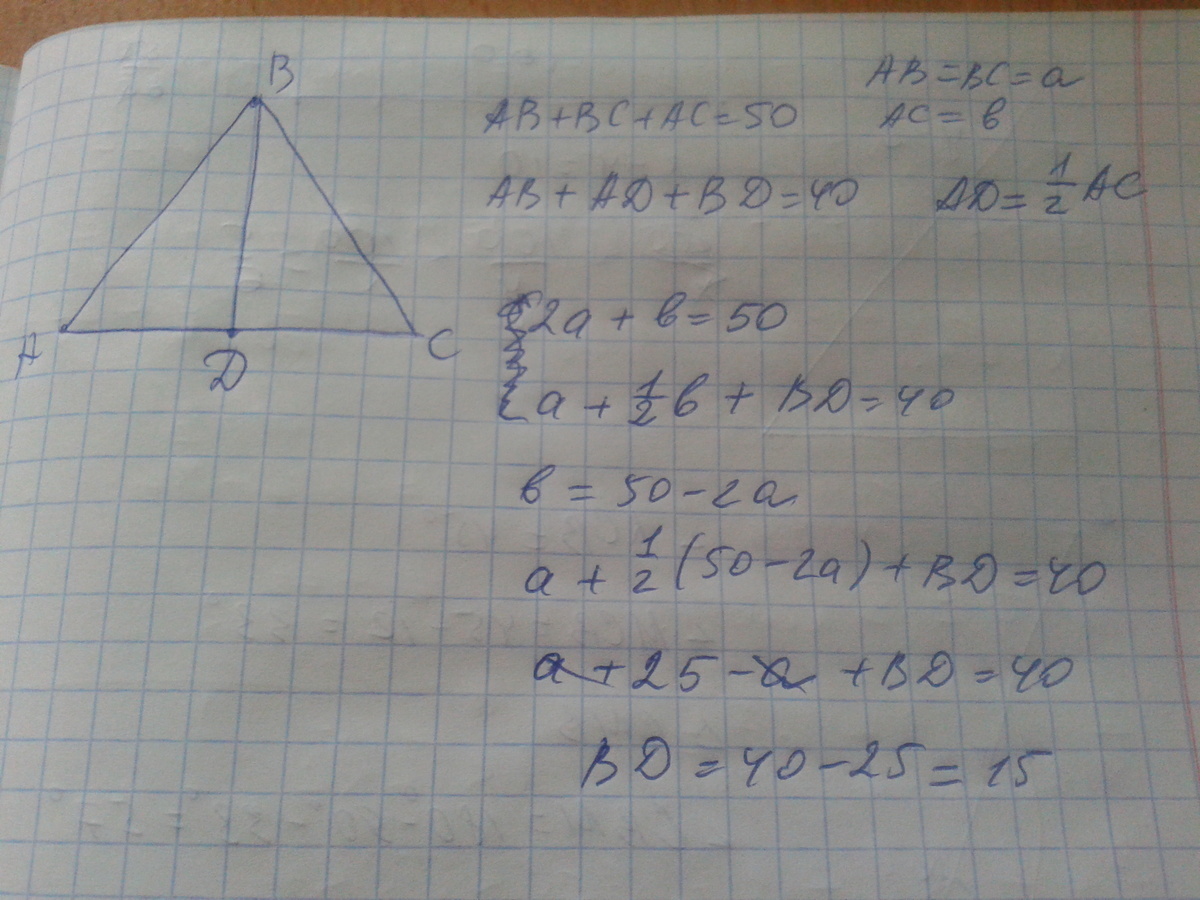 B
AB=BC=a
AB+BC+AC=50
AC=в
AB+AD+BD=40
AD=1/2 AC
A
D
C
2a+в=50
a+1/2в+BD=40
в=50-2a
a+1/2(50-2a)+BD=40
a+25-a+BD=40
BD=40-25=15